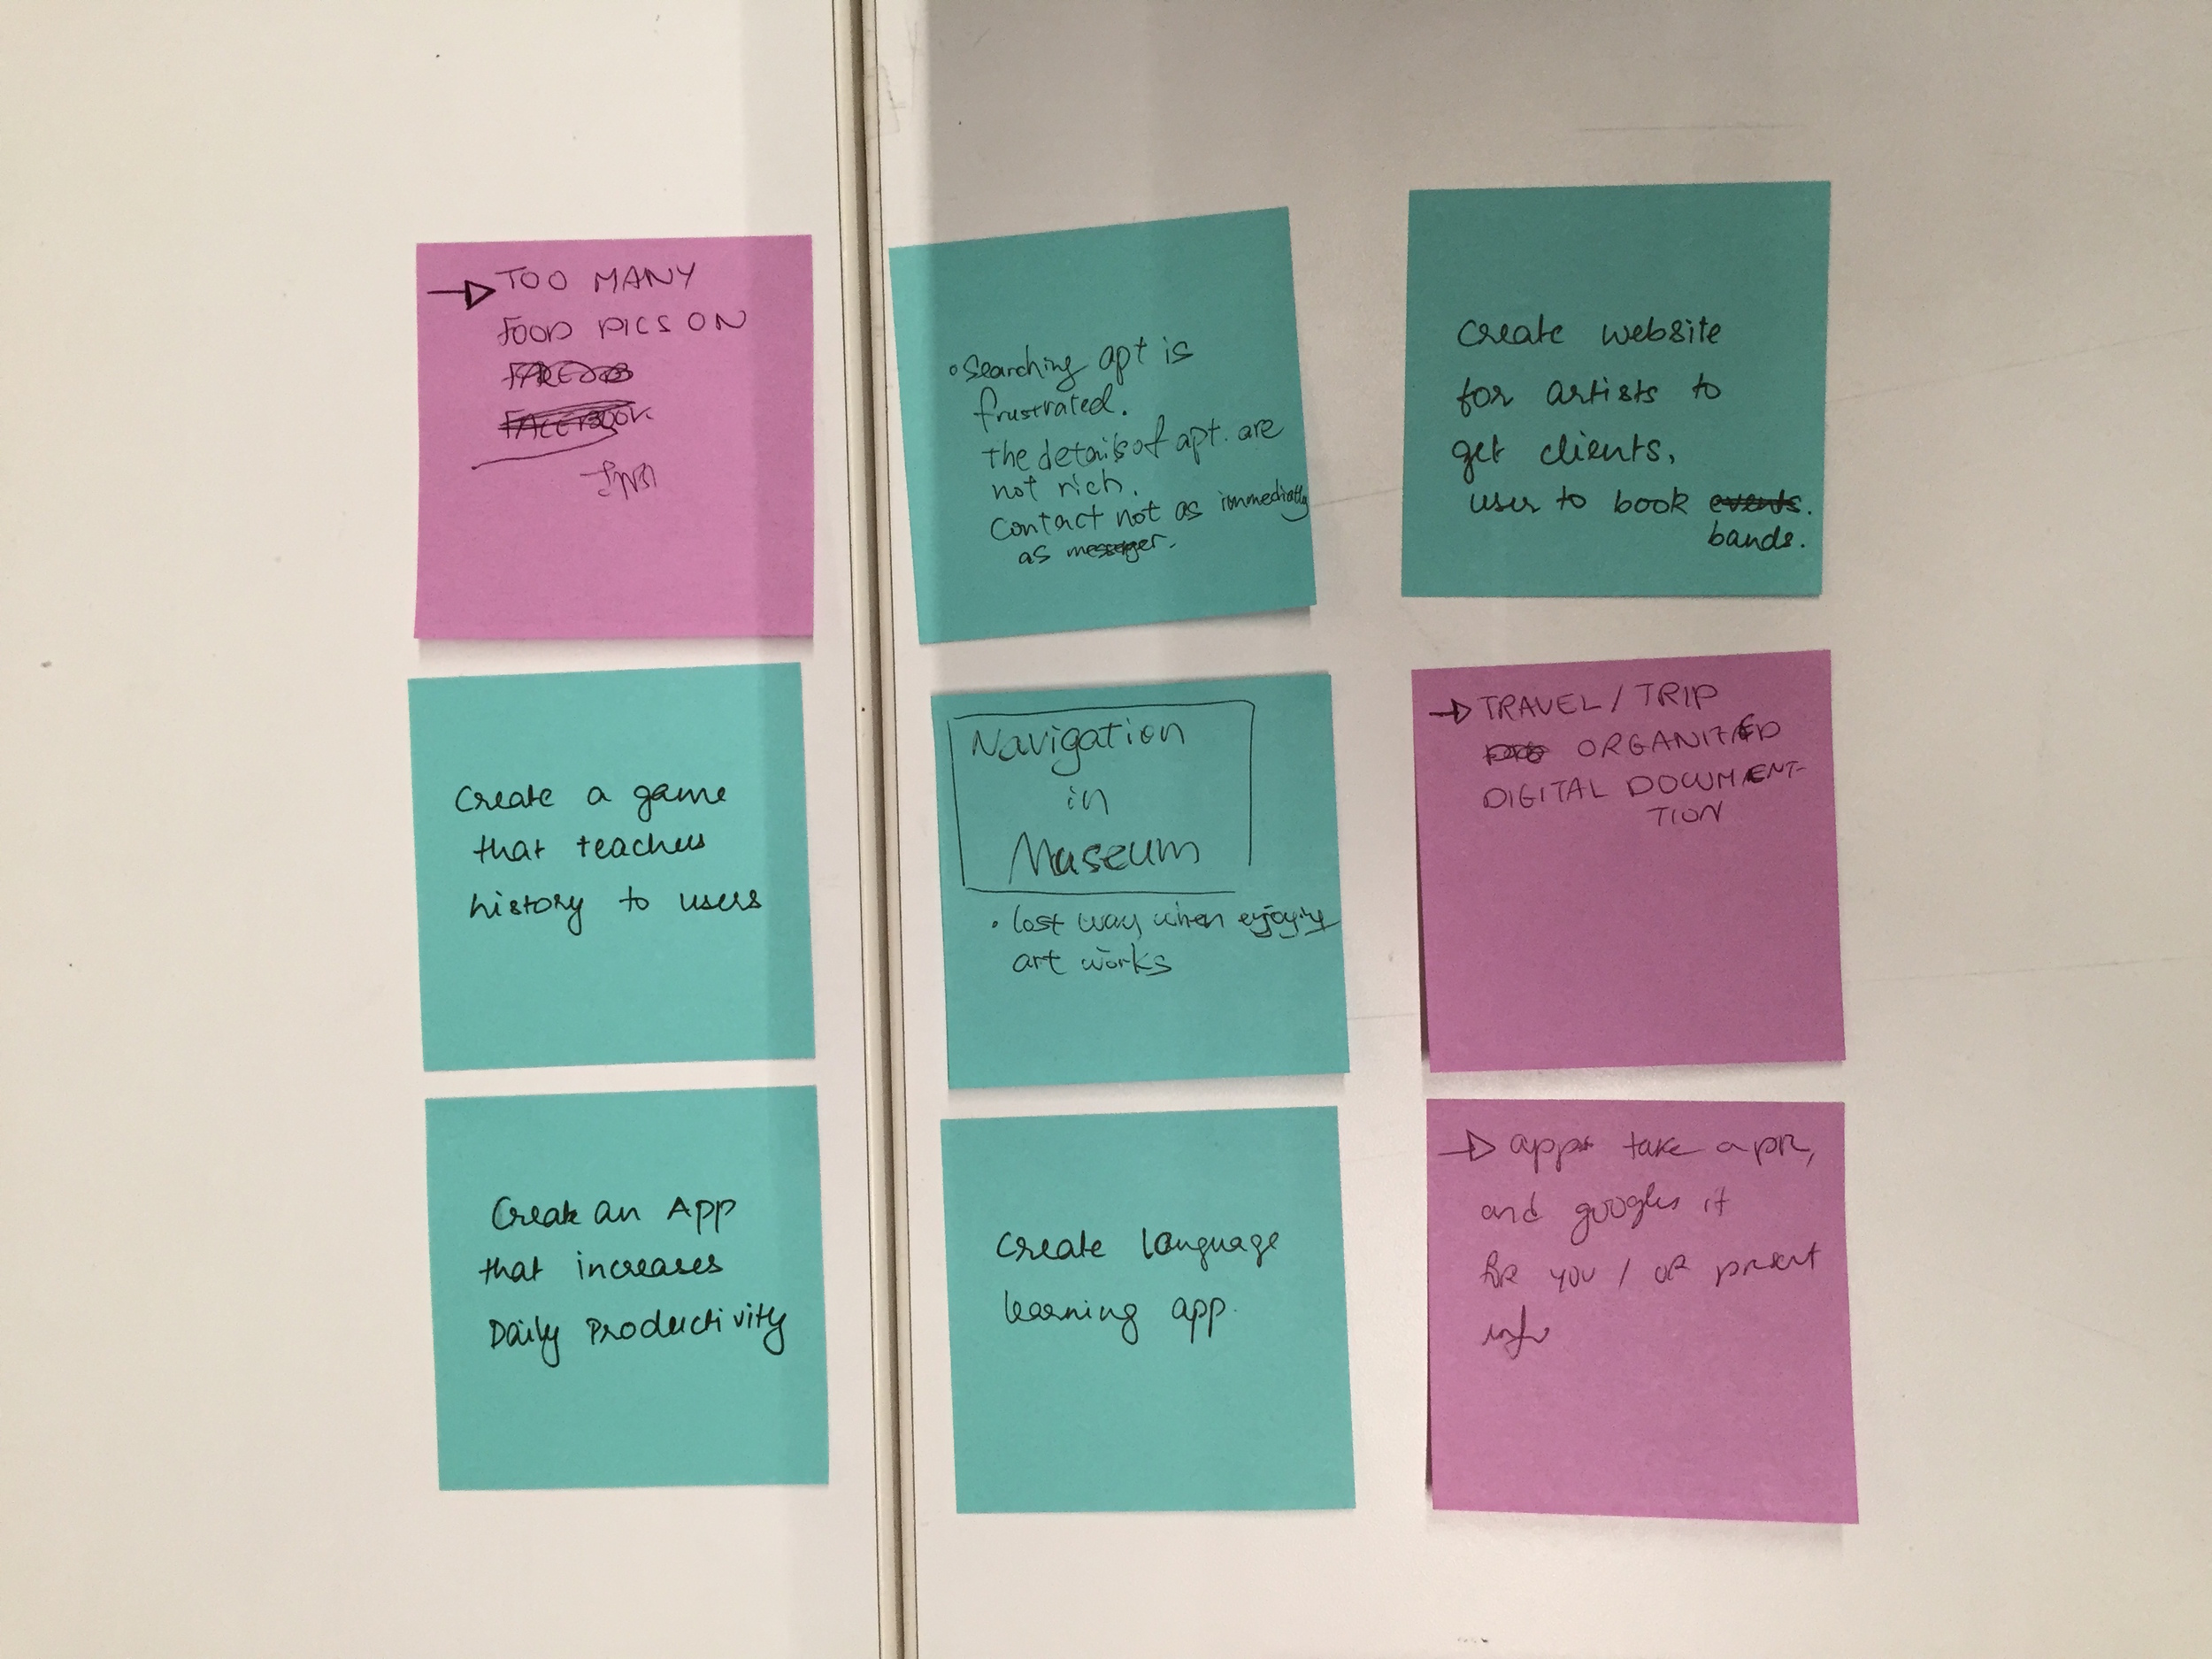 TOO MANY
FOOD PICS ON
FACEBOOK
• Searching apt is
frustrated.
the details of apt. are
not rich.
Contact not as immediatly
as messager.
Create website
for artists to
get clients,
user to book events.
bands.
Create a game
that teaches
history to users
Navigation
in
Museum
• lost way when enjoying
art works
TRAVEL / TRIP
ORGANIZED
DIGITAL DOCUMENT-
TION
Create an App
that increases
Daily Productivity
Create language
learning app.
app take a pic,
and googles it
for you / or present
info